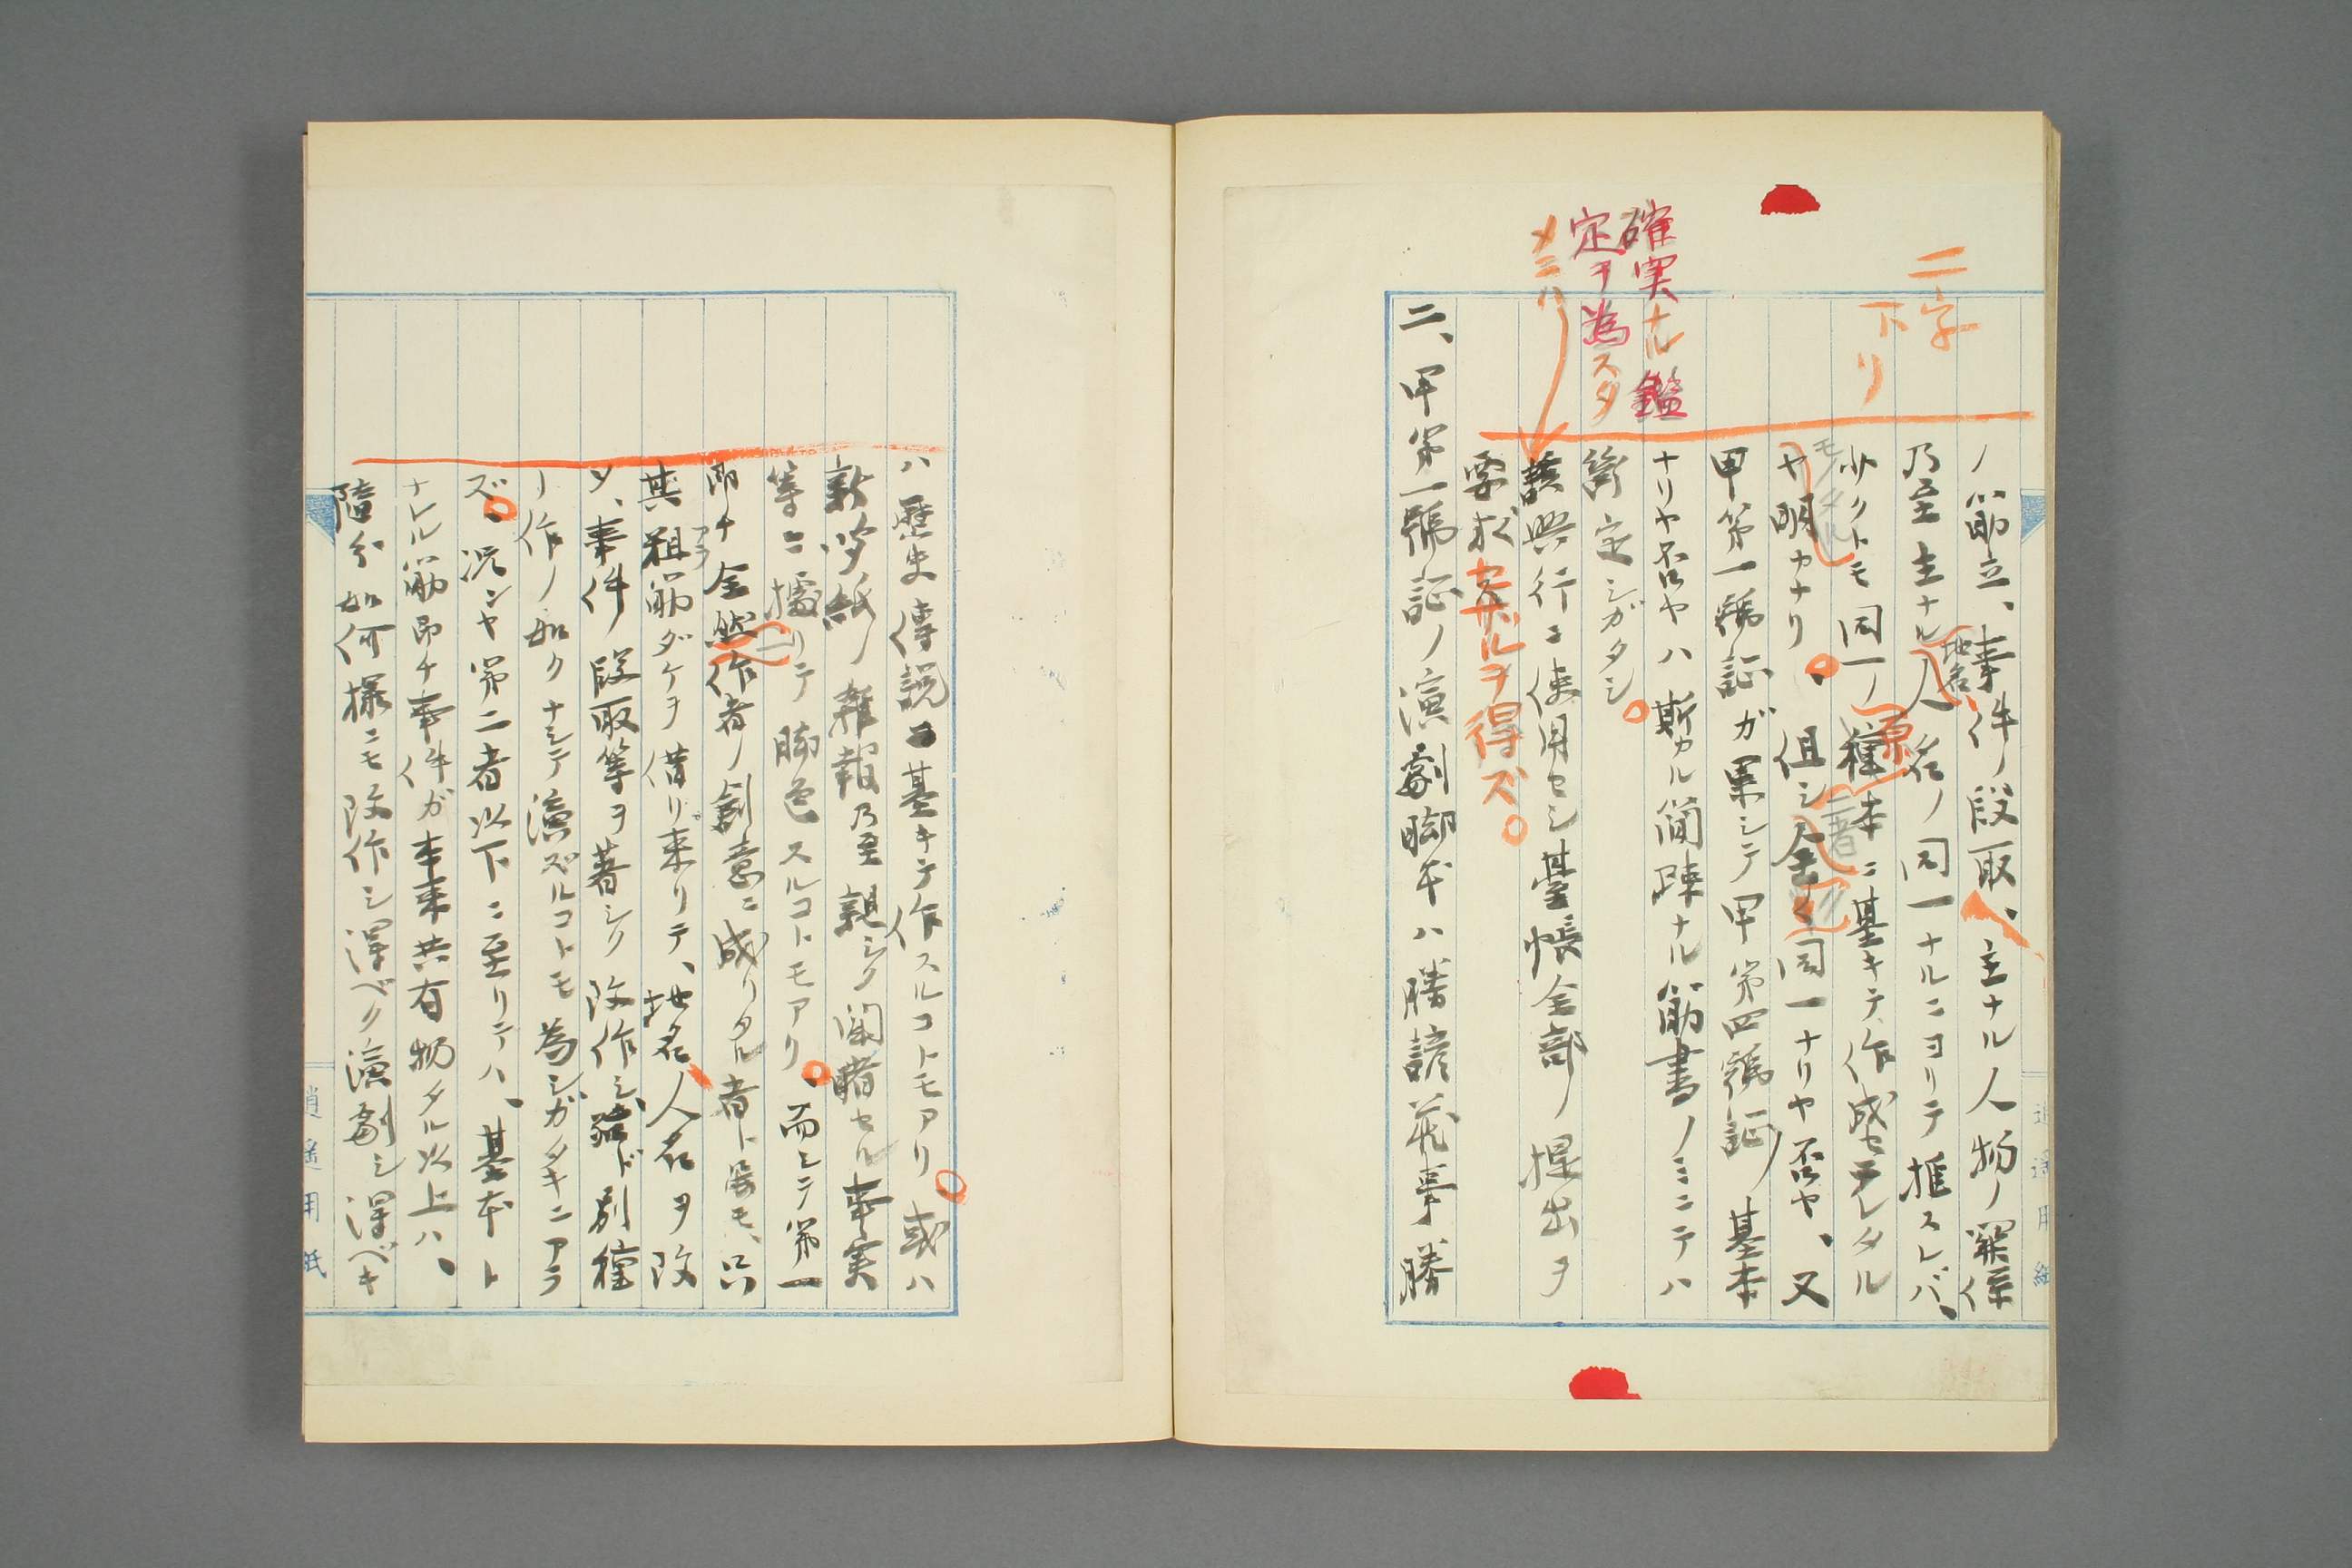 二字
下リ
ノ筋立、事件ノ段取、主ナル人物ノ関係
乃至主ナル地名人名ノ同一ナルニヨリテ推スレバ、
少クトモ同一ノ種原本ニ基キテ作成セラレタル
モノタル
ヤ明カナリ、但シ二者全ク同一ナリヤ否ヤ、又
甲第一號証ガ果シテ甲第四號証ノ基本
ナリヤ否ヤハ斯カル簡疎ナル筋書ノミニテハ
衡定シガタシ。
確実ナル鑑
定ヲ為スタ
メニハ
興行ニ使用セシ臺帳全部ノ提出ヲ
要求セザルヲ得ズ。
二、甲第一號証ノ演劇脚本ハ勝諺蔵事勝
ハ歴史傳説ニ基キテ作スルコトモアリ。或ハ
新聞紙ノ雜報乃至親シク聞睹セル事実
等ニ據リテ脚色スルコトモアリ。而シテ第一
即チ全然作者ノ創意ニ成リタル者ト雖モ、只
其粗筋ダケヲ借リ来リテ、地名、人名ヲ改
アラ
メ、事件ノ段取等ヲ著シク改作シ、殆ド別種
ノ作ノ如クナシテ演ズルコトモ為シガタキニアラ
ズ。況ンヤ第二者以下ニ至リテハ、基本ト
ナレル筋即チ事件ガ本来共有物タル以上ハ、
隨分如何様ニモ改作シ得ベク演劇シ得ベキ
逍遙用紙
逍遙用紙